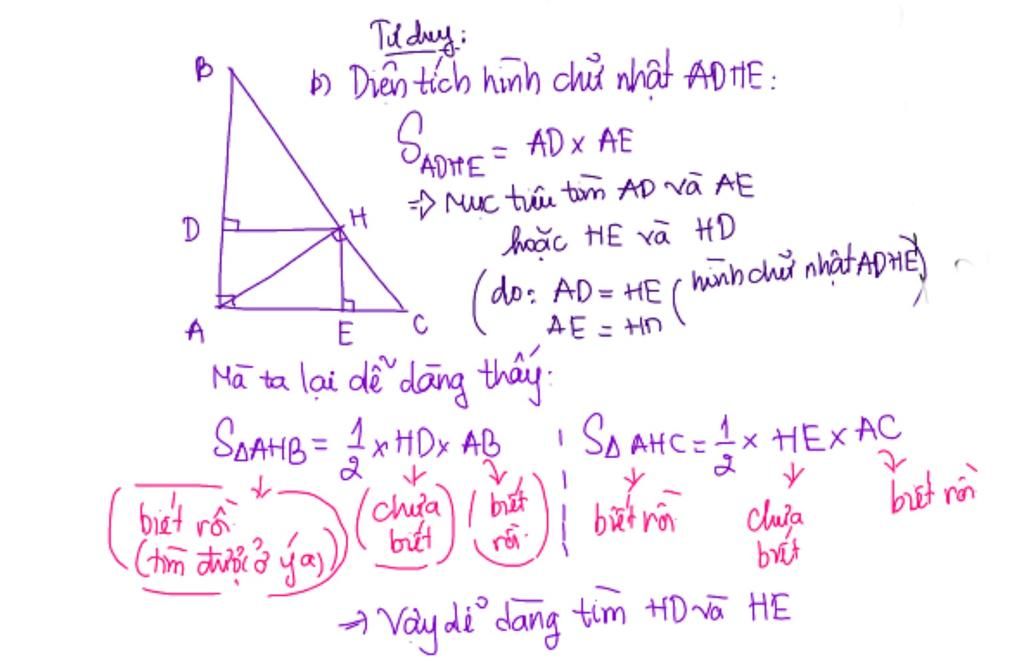 Tư duy:
b) Diện tích hình chữ nhật ADHE:
S ADHE = AD x AE
=> Mục tiêu tìm AD và AE
hoặc HE và HD
(do: AD = HE (hình chữ nhật ADHE)
AE = HD
B
D
H
A
E
C
Mà ta lại dễ dàng thấy:
SΔAHB = 1/2 x HD x AB
SΔAHC = 1/2 x HE x AC
(biết rồi (tìm được ở ý a))
(chưa biết)
(biết rồi)
biết rồi
chưa biết
biết rồi
=> Vậy dễ dàng tìm HD và HE